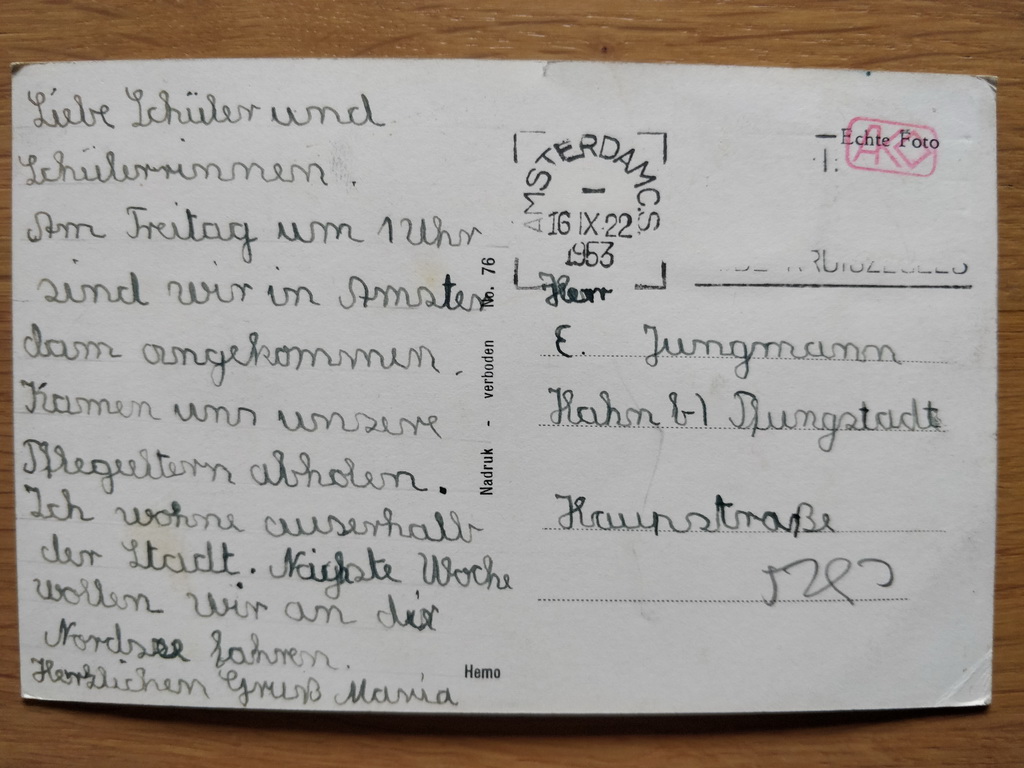 Liebe Schüler und
Schülerrinnen.
Am Freitag um 1 Uhr
sind wir in Amster
dam angekommen.
Kamen uns unsere
Pflegeeltern abholen.
Ich wohne auserhalb
der Stadt. Nächste Woche
wollen wir an die
Nordsee fahren.
Herzlichen Gruß Maria
Nadruk - verboden No. 76
Hemo
AMSTERDAM C.S
16 IX.22
1953
Echte Foto
AKO
Herr
E. Jungmann
Hahn b/ Pfungstadt
Haupstraße